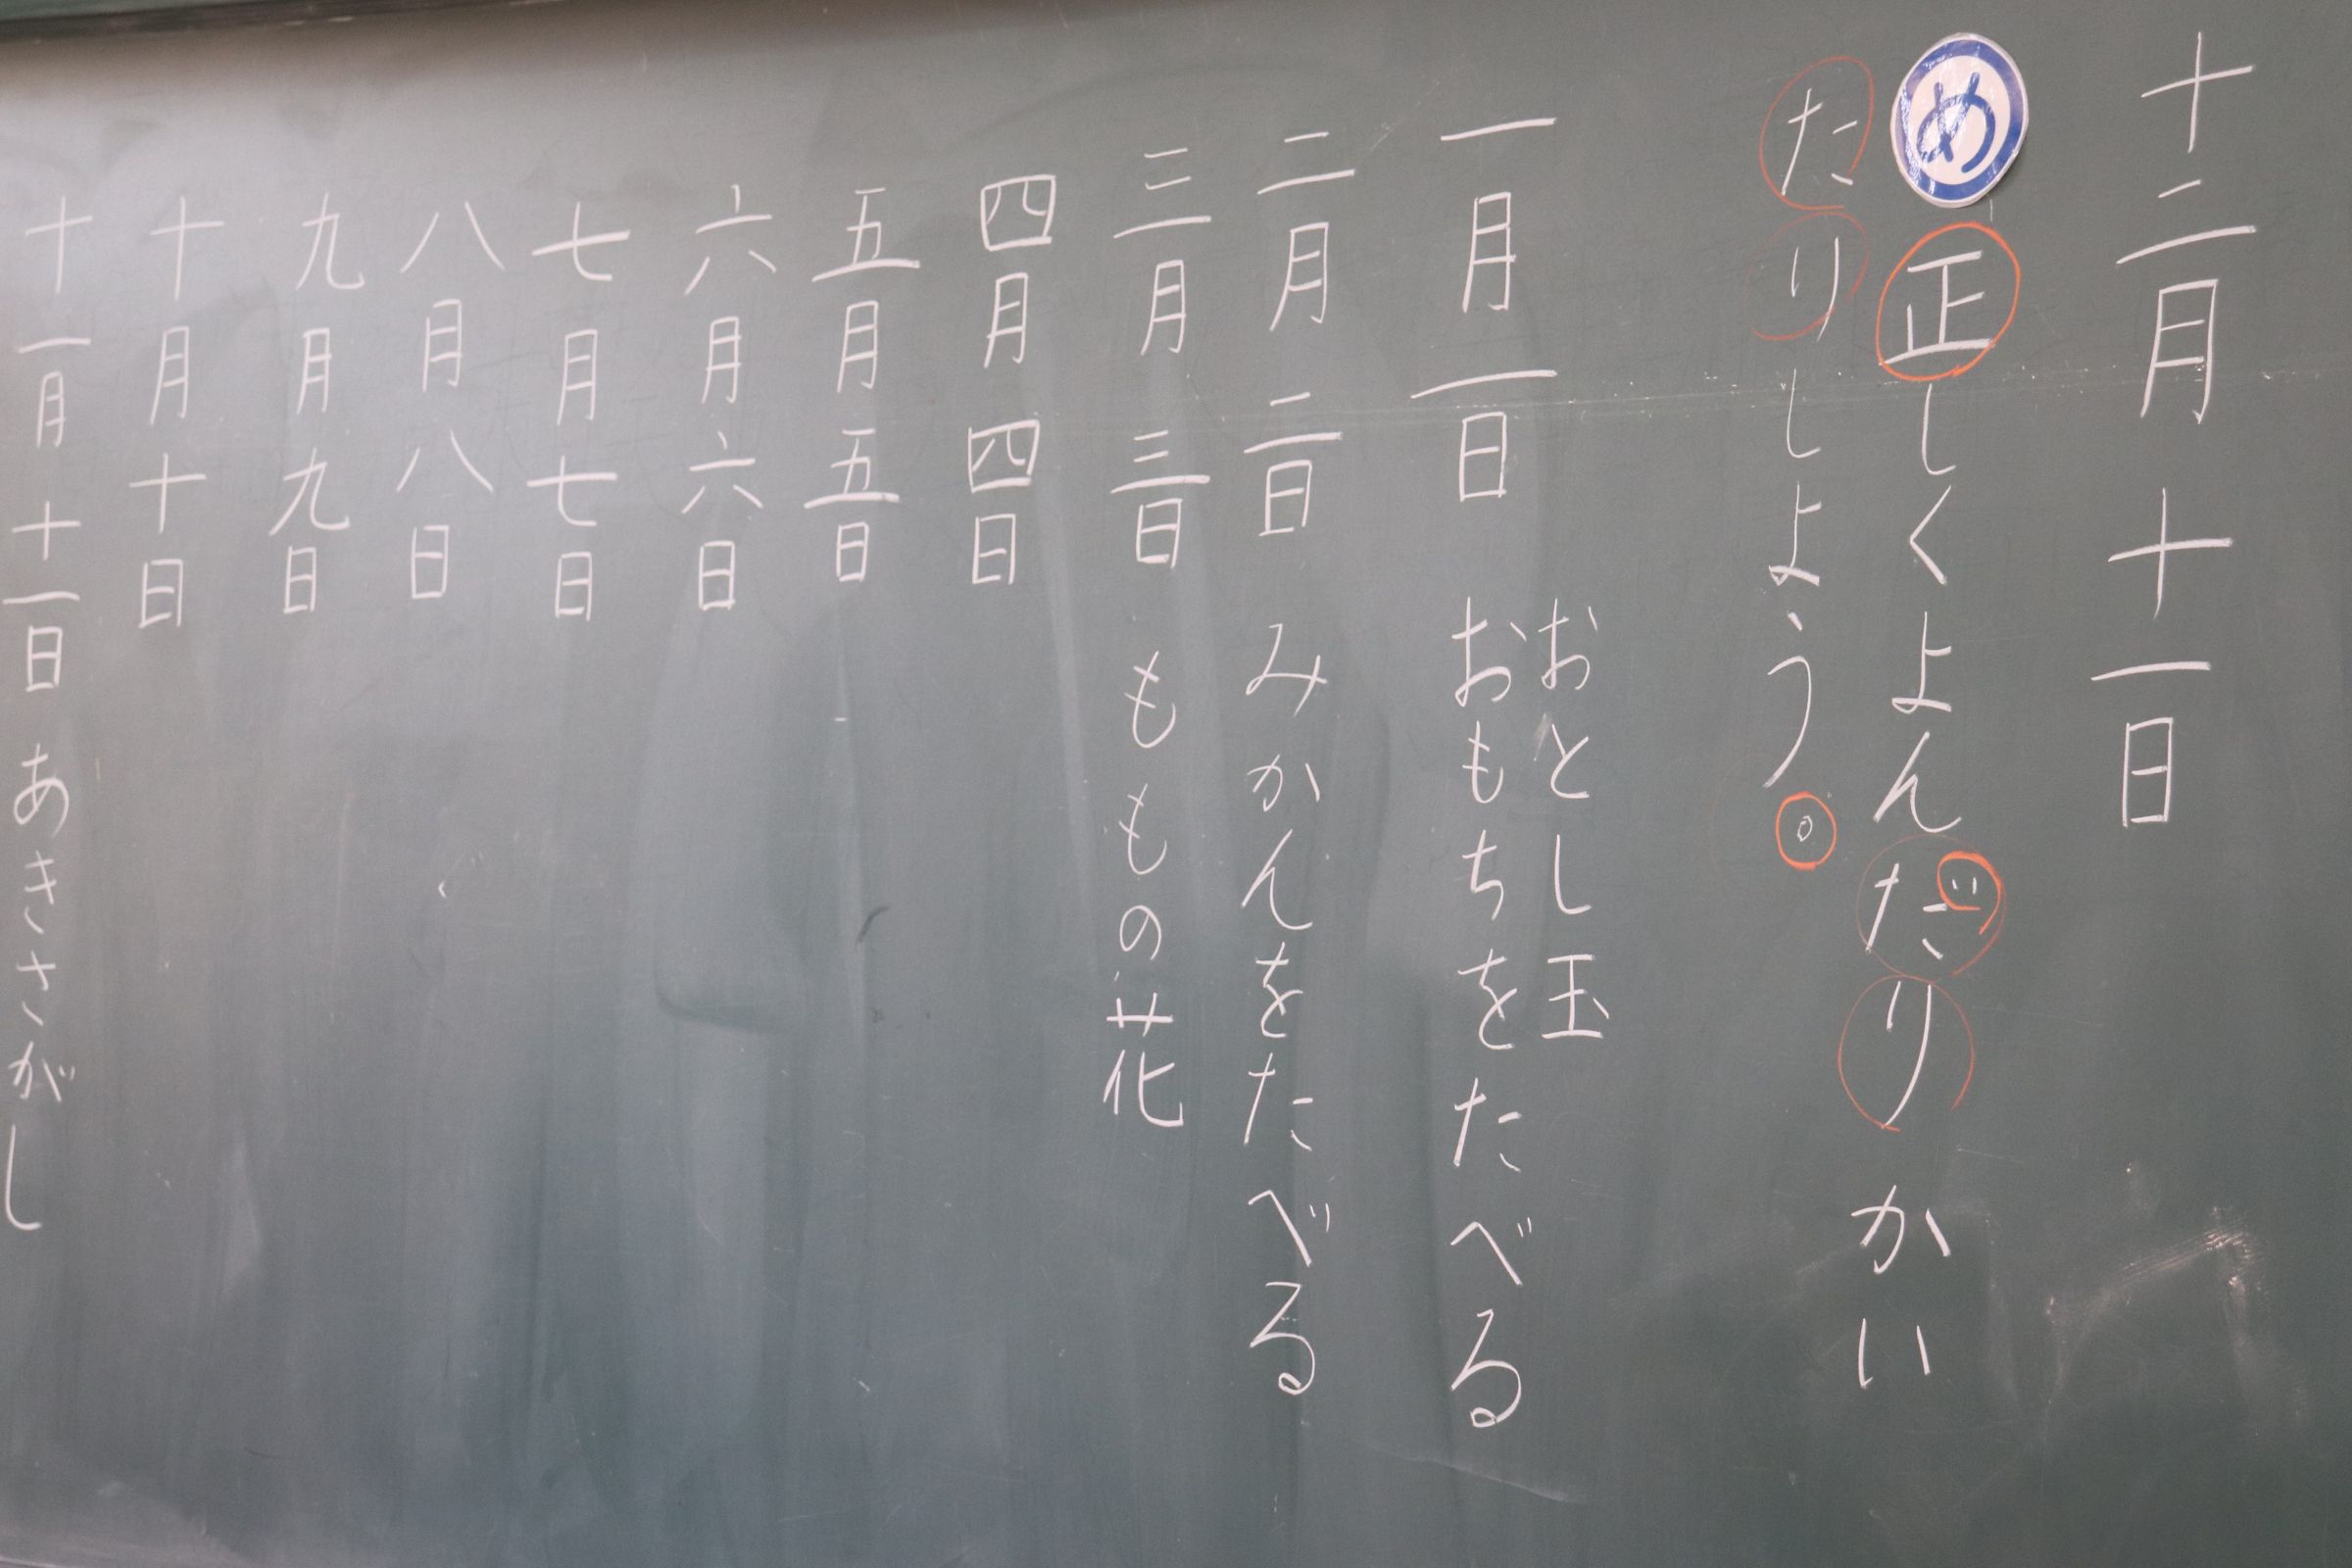 十二月十一日
め 正しくよんだり かい
たりしよう。
おとし玉
一月一日 おもちをたべる
二月二日 みかんをたべる
三月三日 ももの花
四月四日
五月五日
六月六日
七月七日
八月八日
九月九日
十月十日
十一月十一日 あきさがし